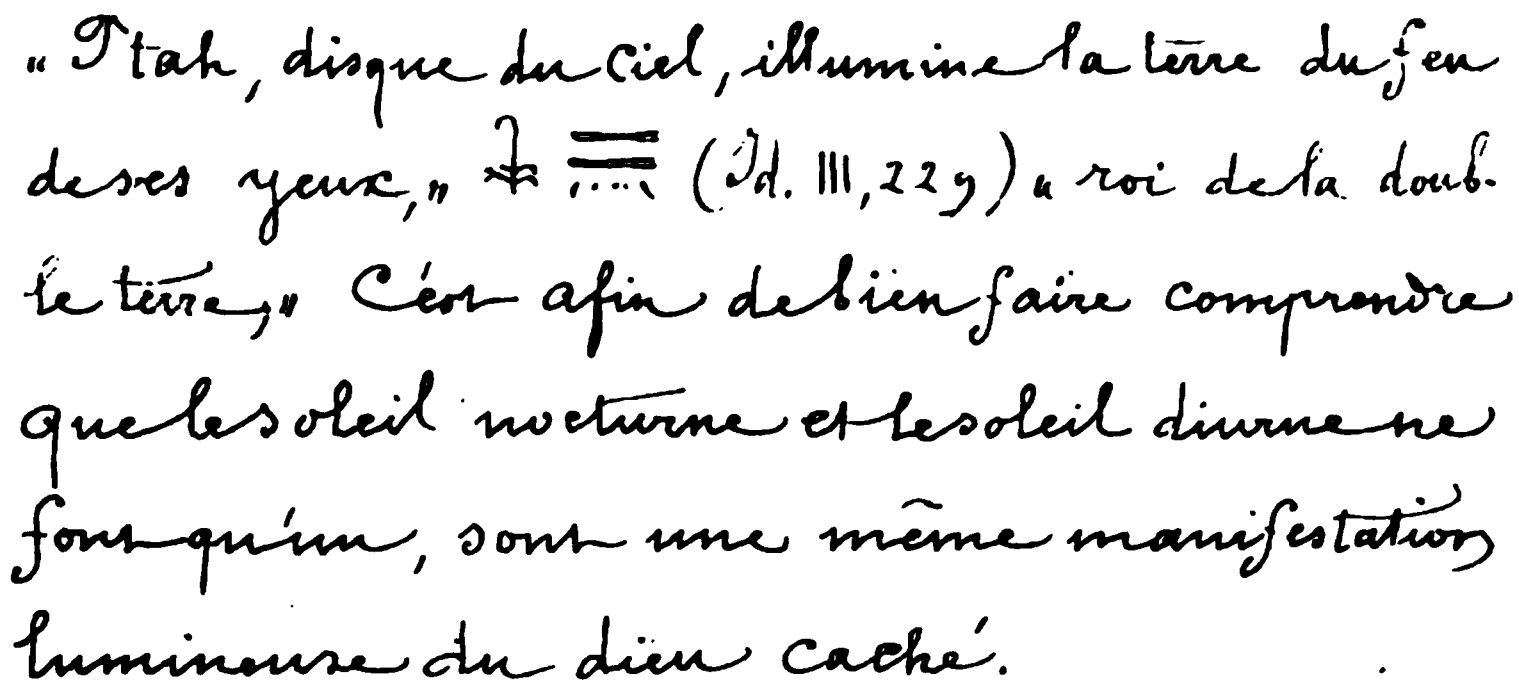 „Ptah, disque du ciel, illumine la terre du feu
de ses yeux,„ 𓇓 𓇿𓇿 (Id. III, 229) „ roi de la doub-
le terre,„ C'est afin de bien faire comprendre
que le soleil nocturne et le soleil diurne ne
font qu'un, sont une même manifestation
lumineuse du dieu caché.